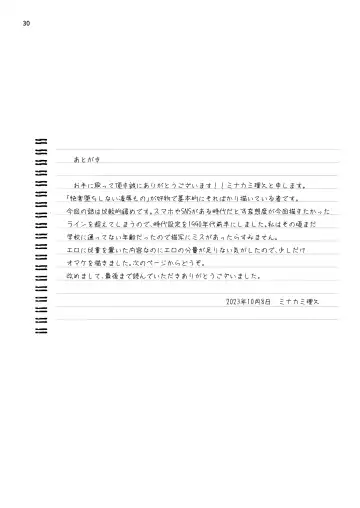 30
あとがき
お手に取って頂き誠にありがとうございます！！ミナカミ理久と申します。
「快楽堕ちしない凌辱もの」が好物で基本的にそればかり描いている者です。
今回の話は比較的緩めです。スマホやSNSがある時代だと危害態度が今回描きたかった
ラインを超えてしまうので、時代設定を1990年代前半にしました。私はその頃まだ
学校に通ってない年齢だったので描写にミスがあったらすみません。
エロに比重を置いた内容なのにエロの分量が足りない気がしたので、少しだけ
オマケを描きました。次のページからどうぞ。
改めまして、最後まで読んでいただきありがとうございました。
2023年10月8日　ミナカミ理久